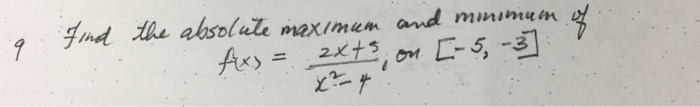 9 Find the absolute maximum and minimum of
f(x) = 2x+5 / x²-4, on [-5, -3]